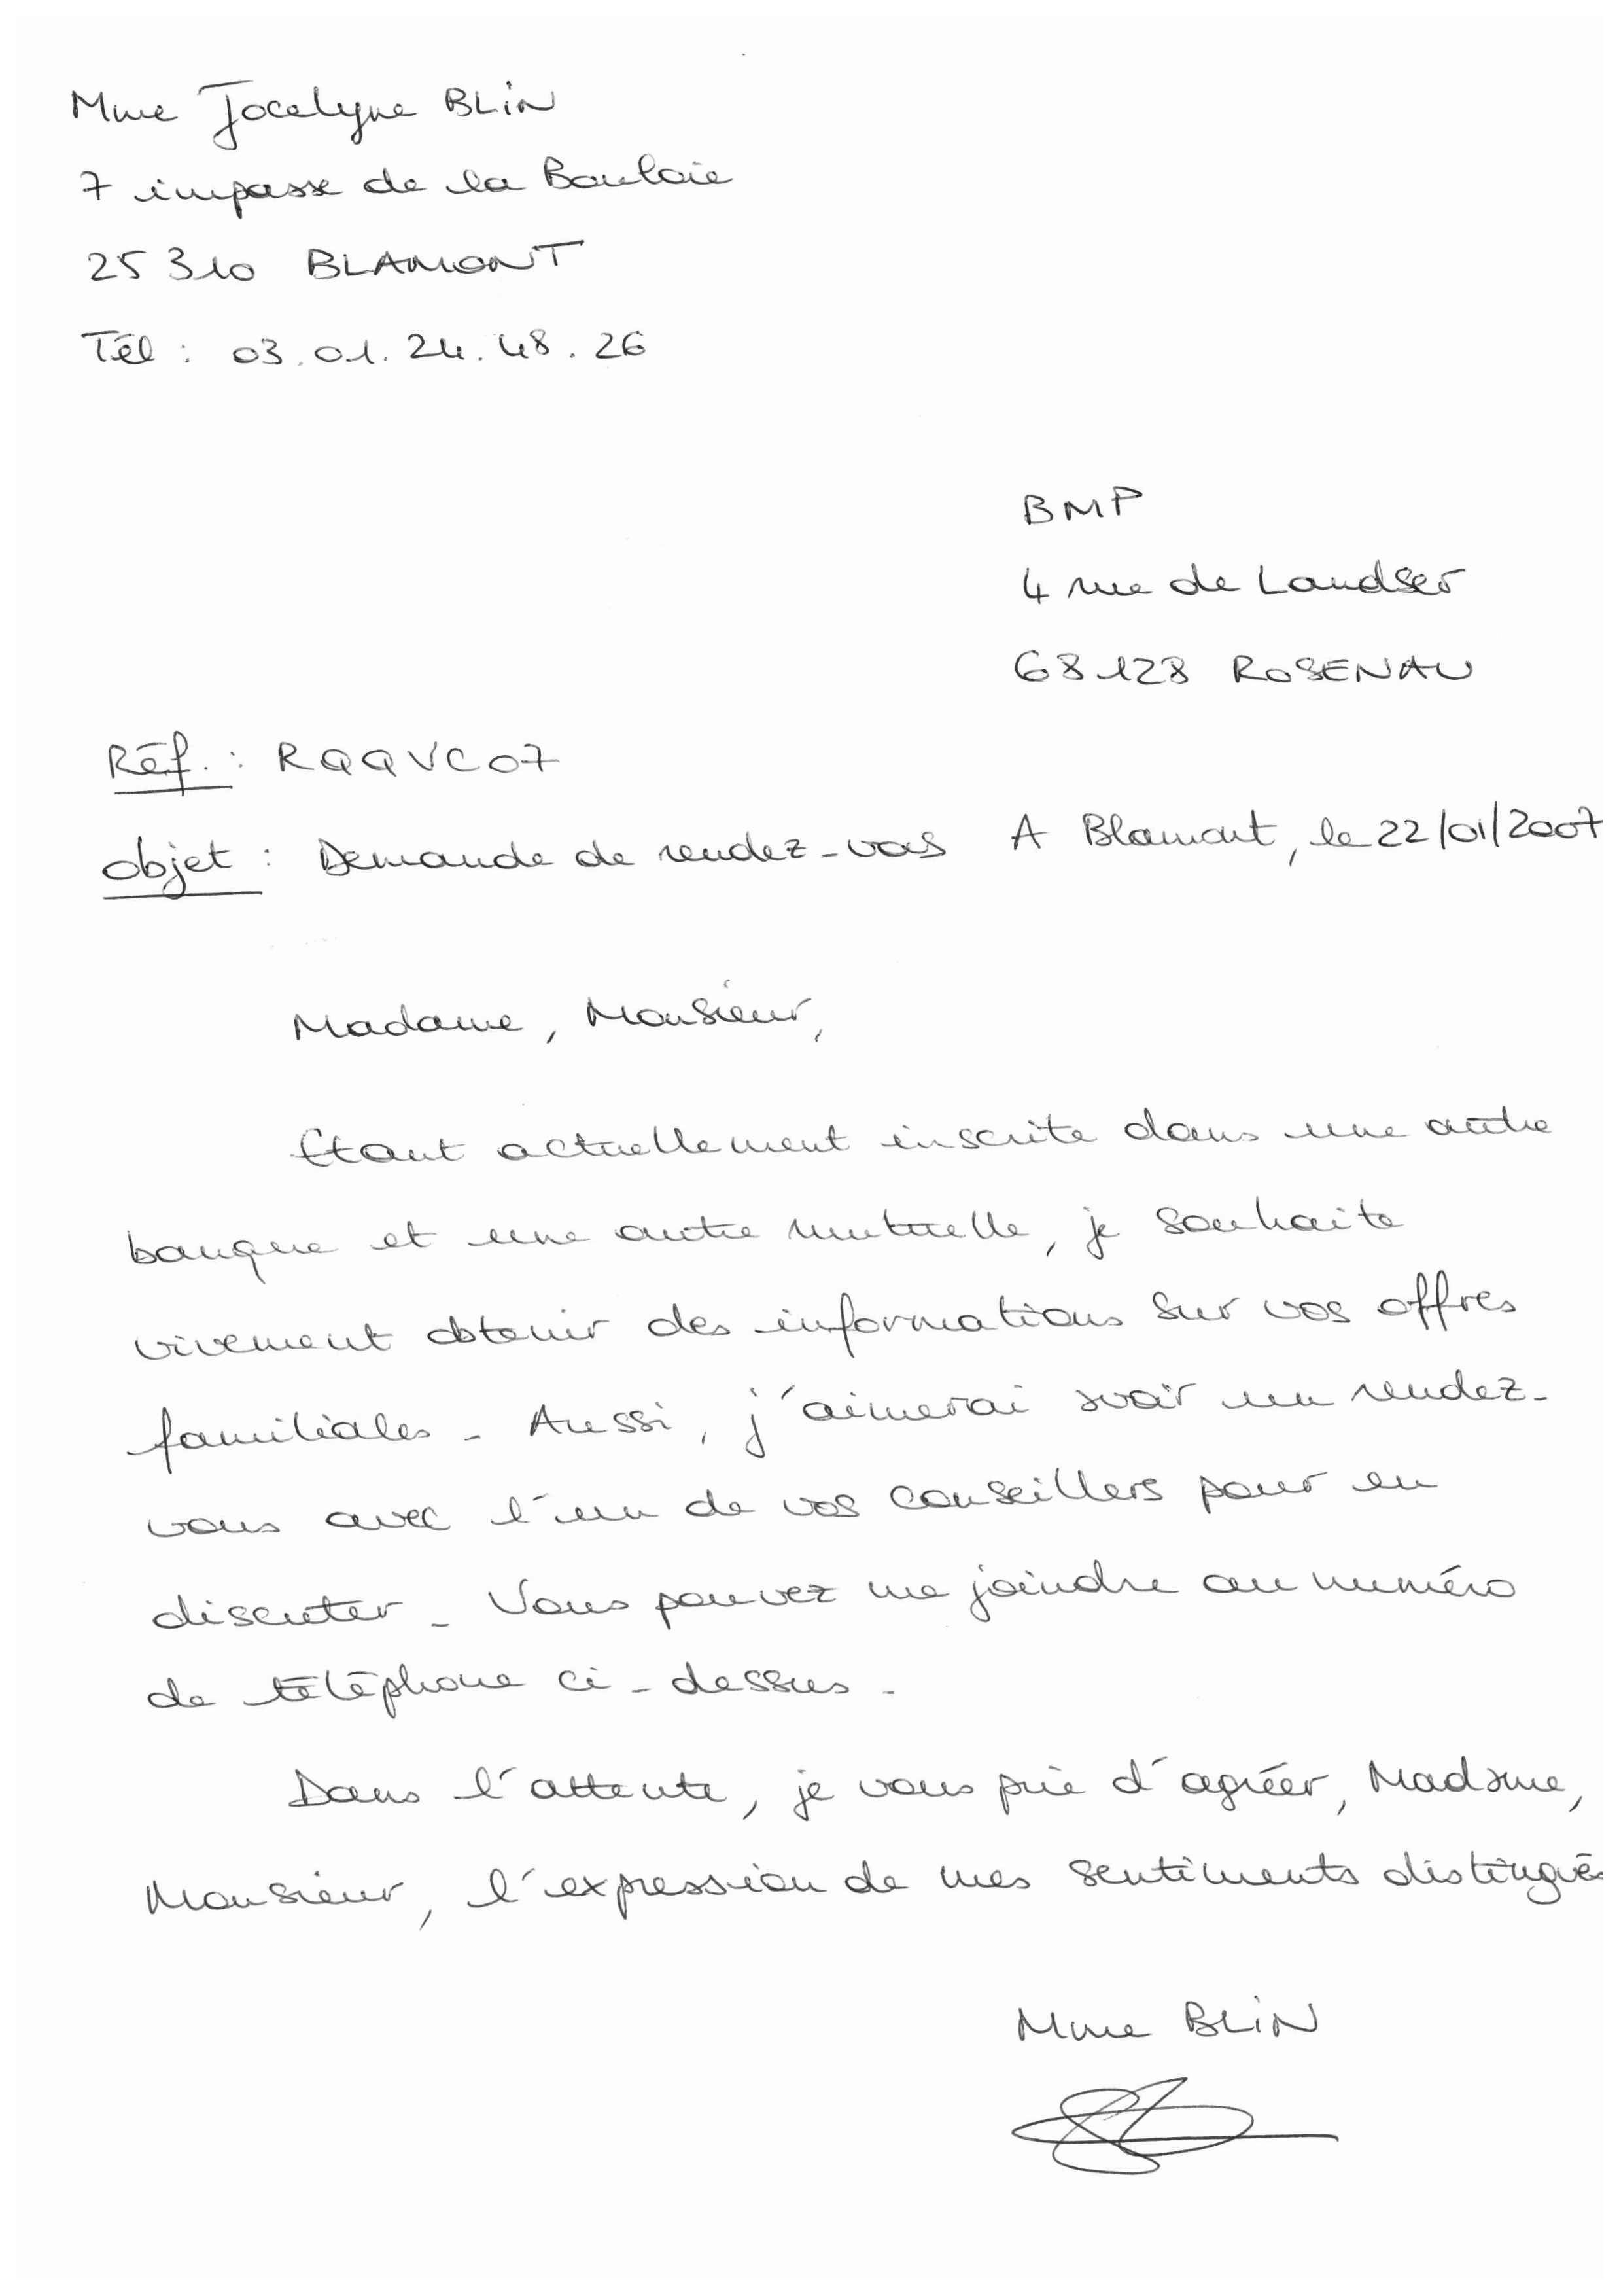 Mme Jocelyne BLIN
7 impasse de la Boulaie
25 310 BLAMONT
Tél : 03.01.24.48.26
BMP
4 rue de Landser
68128 ROSENAU
Réf. : RQQVC07
objet : Demande de rendez-vous A Blamont, le 22/01/2007
Madame, Monsieur,
Etant actuellement inscrite dans une autre
banque et une autre mutuelle, je souhaite
vivement obtenir des informations sur vos offres
familiales. Aussi, j'aimerai avoir un rendez-
vous avec l'un de vos conseillers pour en
discuter. Vous pouvez me joindre au numéro
de téléphone ci-dessus.
Dans l'attente, je vous prie d'agréer, Madame,
Monsieur, l'expression de mes sentiments distingués
Mme BLIN